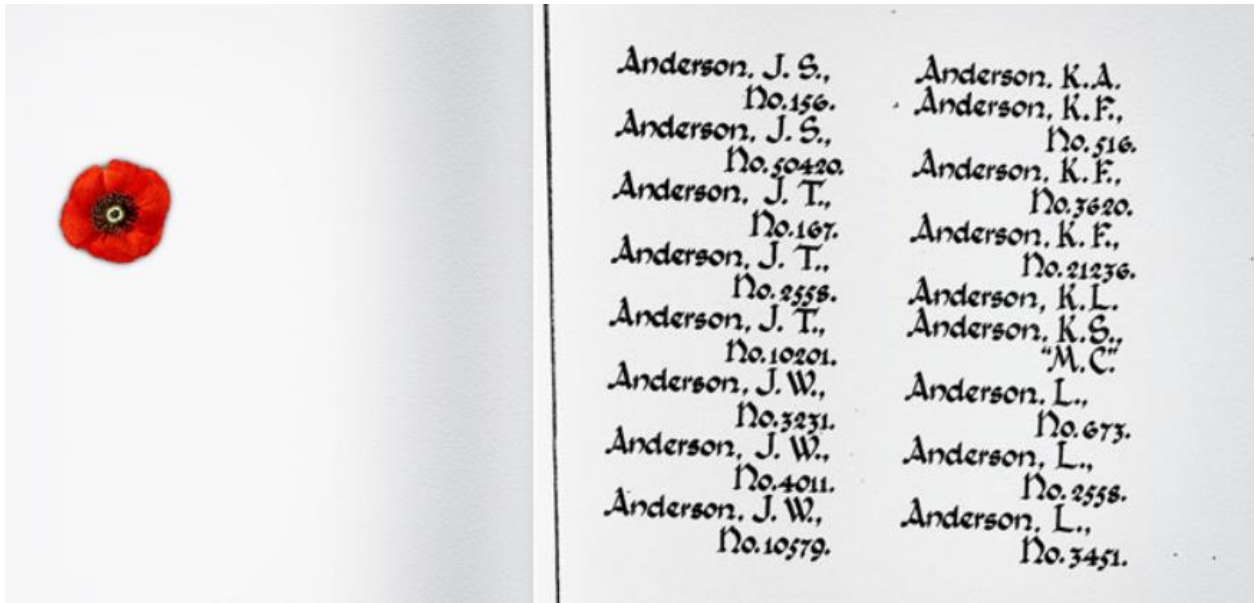 Anderson, J. S.,
No. 156.
Anderson, J. S.,
No. 50420.
Anderson, J. T.,
No. 167.
Anderson, J. T.,
No. 2558.
Anderson, J. T.,
No. 10201.
Anderson, J. W.,
No. 3231.
Anderson, J. W.,
No. 4011.
Anderson, J. W.,
No. 10579.
Anderson, K. A.
Anderson, K. F.,
No. 516.
Anderson, K. F.,
No. 3620.
Anderson, K. F.,
No. 21236.
Anderson, K. L.
Anderson, K. S.,
"M. C."
Anderson, L.,
No. 673.
Anderson, L.,
No. 2558.
Anderson, L.,
No. 3451.